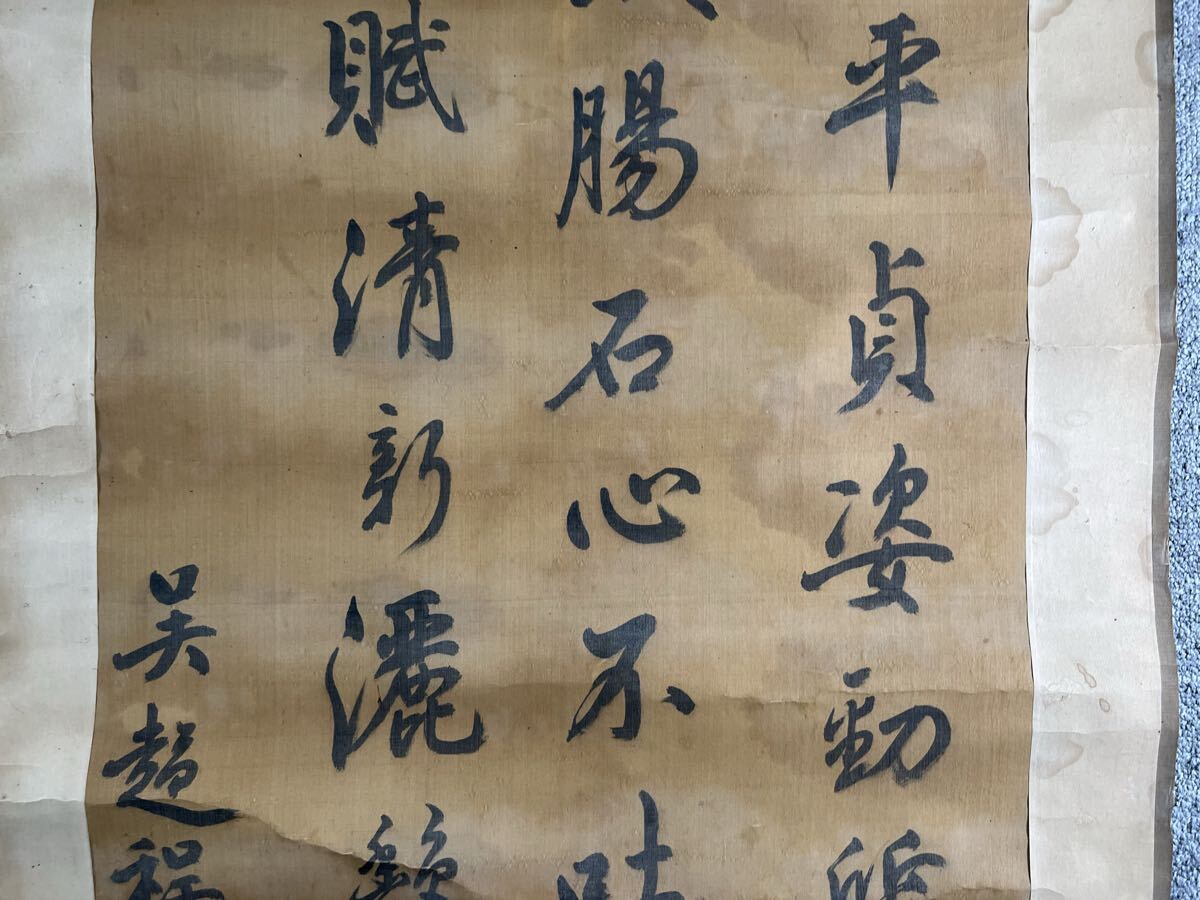 平貞姿勁
腸石心不
賦清新灑
吴趙程